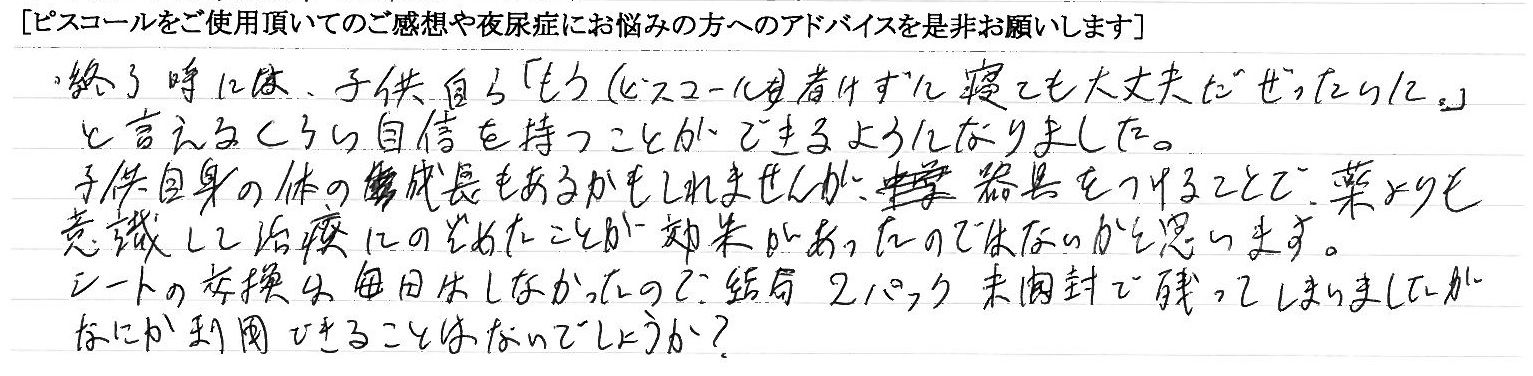 [ピスコールをご使用頂いてのご感想や夜尿症にお悩みの方へのアドバイスを是非お願いします]
・終了時には、子供自ら「もう(ピスコールを)着けずに寝ても大丈夫だぜったいに。」
と言えるくらい自信を持つことができるようになりました。
子供自身の体の成長もあるかもしれませんが、器具をつけることで、薬よりも
意識して治療にのぞめたことが効果があったのではないかと思います。
シートの交換は毎日はしなかったので、結局2パック未開封で残ってしまいましたが
なにか利用できることはないでしょうか?